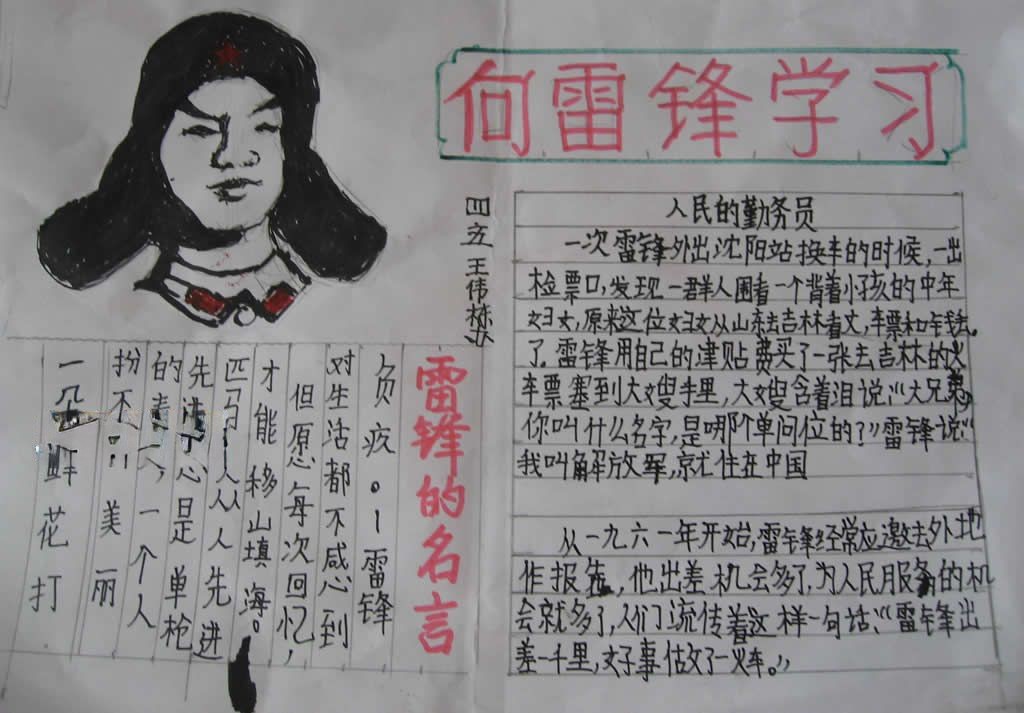 向雷锋学习
四五 王伟栋
人民的勤务员
一次雷锋外出沈阳站换车的时候,一出
检票口,发现一群人围着一个背着小孩的中年
妇女,原来这位妇女从山东去吉林看丈,车票和钱丢。
了.雷锋用自己的津贴费买了一张去吉林的火
车票塞到大嫂手里,大嫂含着泪说:“大兄弟,
你叫什么名字,是哪个单问位的?”雷锋说:“
我叫解放军,就住在中国
从一九六一年开始,雷锋经常应邀去外地
作报告,他出差机会多了,为人民服务的机
会就多了,人们流传着这样一句话:“雷锋出
差一千里,好事做了一火车。”
雷锋的名言
一朵鲜花打
扮不美丽
的春天,一个人
先进总是单枪
匹马,众人先进
才能移山填海。
但愿每次回忆,
对生活都不感到
负疚。—雷锋